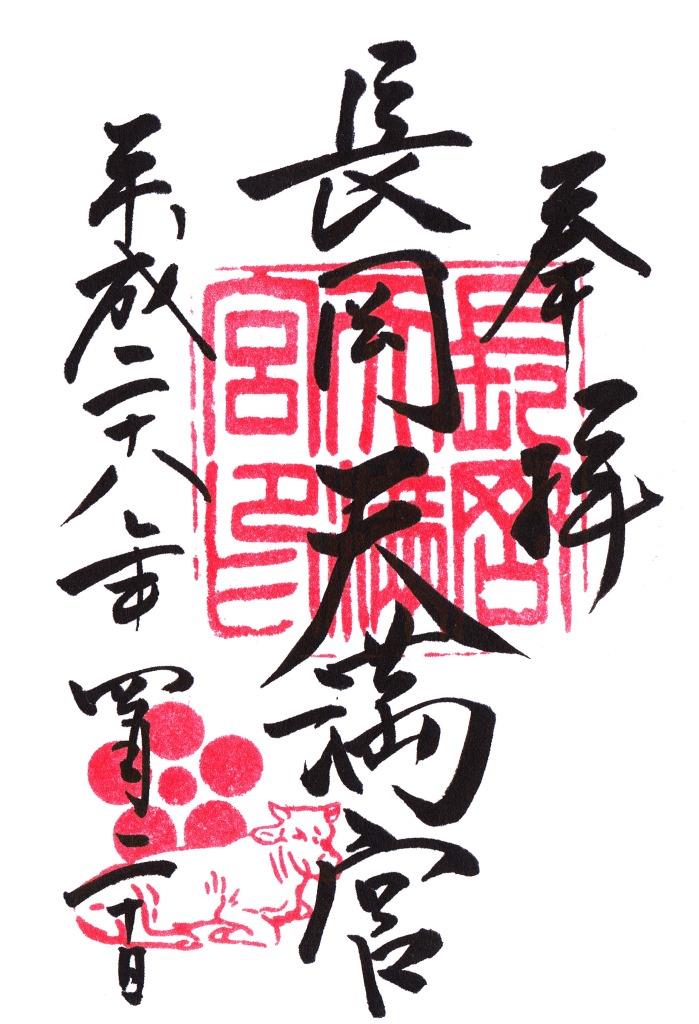 奉拝
長岡天満宮
平成二十八年四月二十日
長岡
天満
宮印